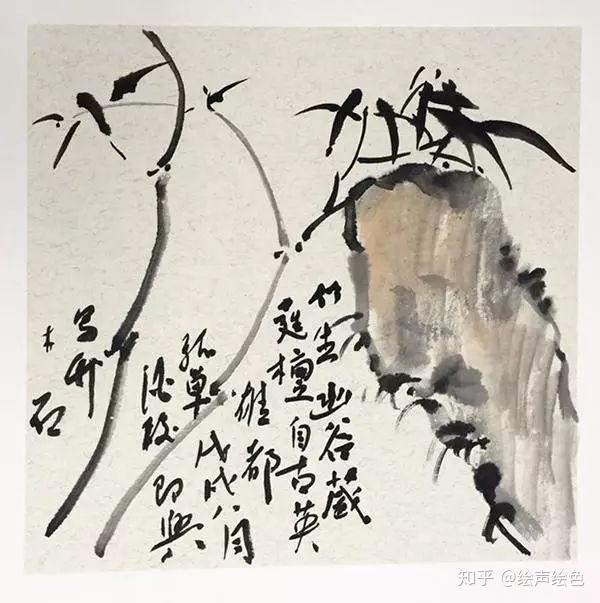 竹生幽谷藏
檀自古英
雄都
孤单戊戌八月
酒後即興
写竹
木石
知乎 @绘声绘色